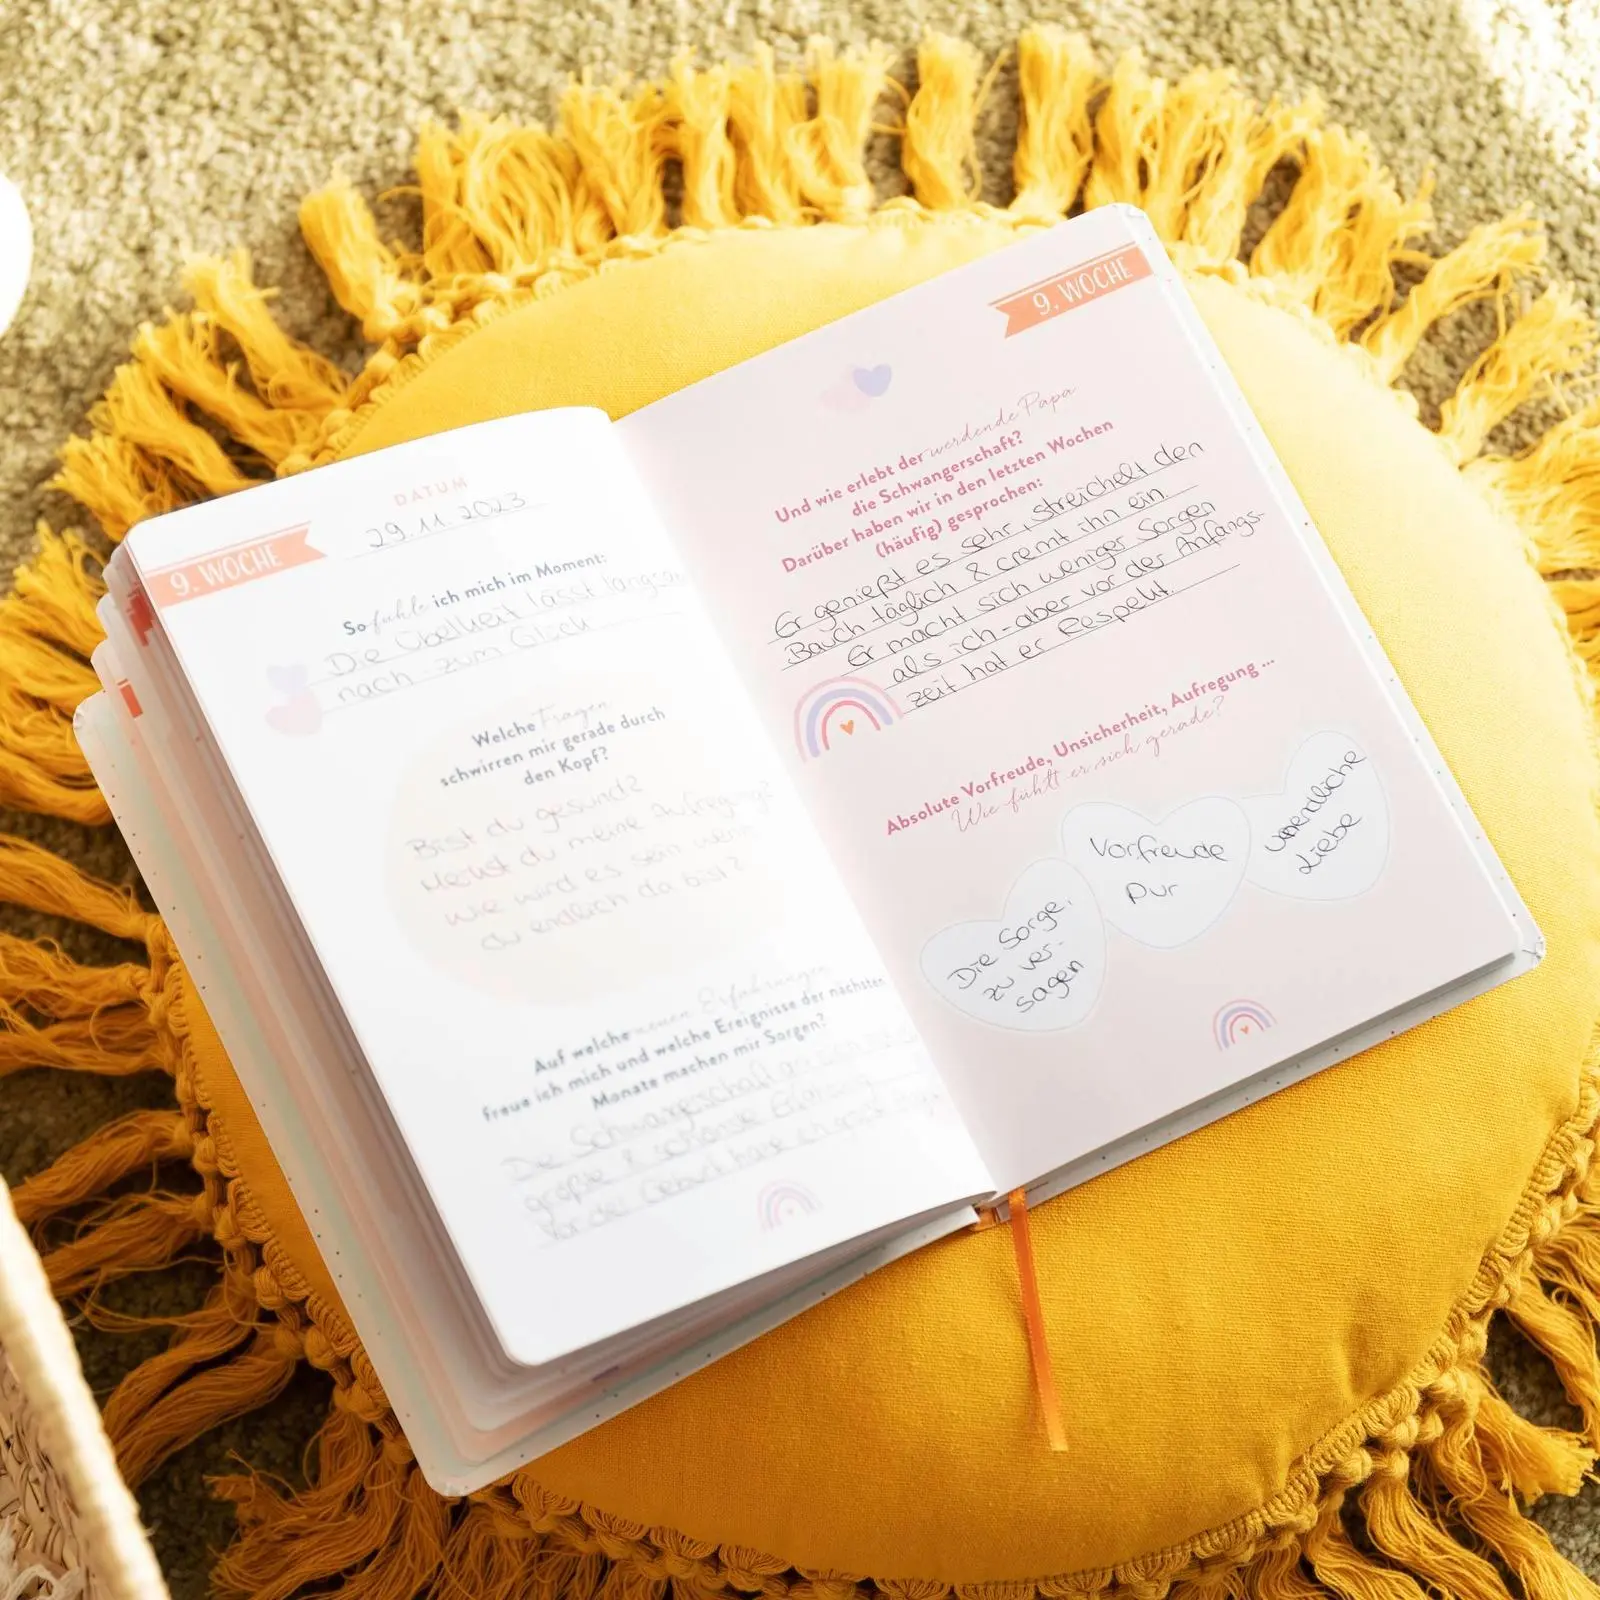 9. WOCHE
DATUM
29.11.2023
So fühle ich mich im Moment:
Die Übelkeit lässt langsam
nach - zum Glück
Welche Fragen
schwirren mir gerade durch
den Kopf?
Bist du gesund?
Merkst du meine Aufregung?
Wie wird es sein wenn
du endlich da bist?
Auf welche neuen Erfahrungen
freue ich mich und welche Ereignisse der nächsten
Monate machen mir Sorgen?
Die Schwangerschaft an sich ist die
größte & schönste Erfahrung
Vor der Geburt habe ich
9. WOCHE
Und wie erlebt der werdende Papa
die Schwangerschaft?
Darüber haben wir in den letzten Wochen
(häufig) gesprochen:
Er genießt es sehr, streichelt den
Bauch täglich & cremt ihn ein.
Er macht sich weniger Sorgen
als ich - aber vor der Anfangs-
zeit hat er Respekt.
Absolute Vorfreude, Unsicherheit, Aufregung ...
Wie fühlt er sich gerade?
Die Sorge,
zu ver-
sagen
Vorfreude
Pur
unendliche
Liebe